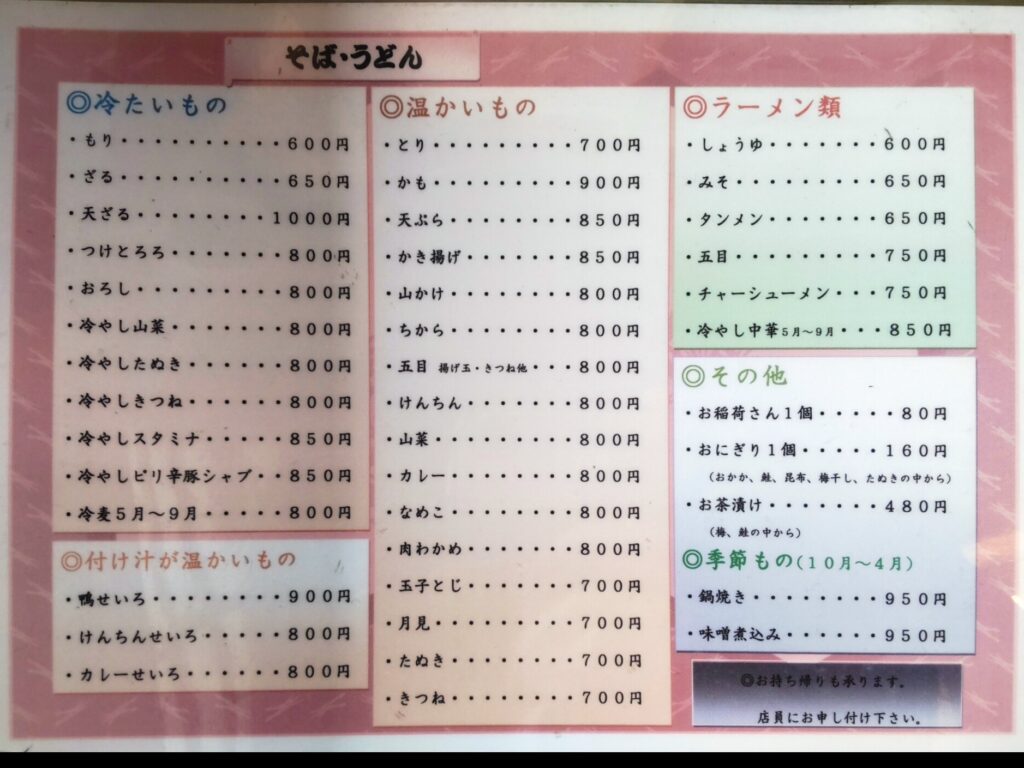 そば・うどん
◎冷たいもの
・もり・・・・・・・・・・600円
・ざる・・・・・・・・・・650円
・天ざる・・・・・・・・1000円
・つけとろろ・・・・・・・800円
・おろし・・・・・・・・・800円
・冷やし山菜・・・・・・・800円
・冷やしたぬき・・・・・・800円
・冷やしきつね・・・・・・800円
・冷やしスタミナ・・・・・850円
・冷やしピリ辛豚シャブ・・850円
・冷麦5月～9月・・・・・800円
◎付け汁が温かいもの
・鴨せいろ・・・・・・・・900円
・けんちんせいろ・・・・・800円
・カレーせいろ・・・・・・800円
◎温かいもの
・とり・・・・・・・・・700円
・かも・・・・・・・・・900円
・天ぷら・・・・・・・・850円
・かき揚げ・・・・・・・850円
・山かけ・・・・・・・・800円
・ちから・・・・・・・・800円
・五目 揚げ玉・きつね他・・・800円
・けんちん・・・・・・・800円
・山菜・・・・・・・・・800円
・カレー・・・・・・・・800円
・なめこ・・・・・・・・800円
・肉わかめ・・・・・・・800円
・玉子とじ・・・・・・・700円
・月見・・・・・・・・・700円
・たぬき・・・・・・・・700円
・きつね・・・・・・・・700円
◎ラーメン類
・しょうゆ・・・・・・・600円
・みそ・・・・・・・・・650円
・タンメン・・・・・・・650円
・五目・・・・・・・・・750円
・チャーシューメン・・・750円
・冷やし中華5月～9月・・・850円
◎その他
・お稲荷さん1個・・・・・80円
・おにぎり1個・・・・・160円
（おかか、鮭、昆布、梅干し、たぬきの中から）
・お茶漬け・・・・・・・480円
（梅、鮭の中から）
◎季節もの(10月～4月)
・鍋焼き・・・・・・・・950円
・味噌煮込み・・・・・・950円
◎お持ち帰りも承ります。
店員にお申し付け下さい。